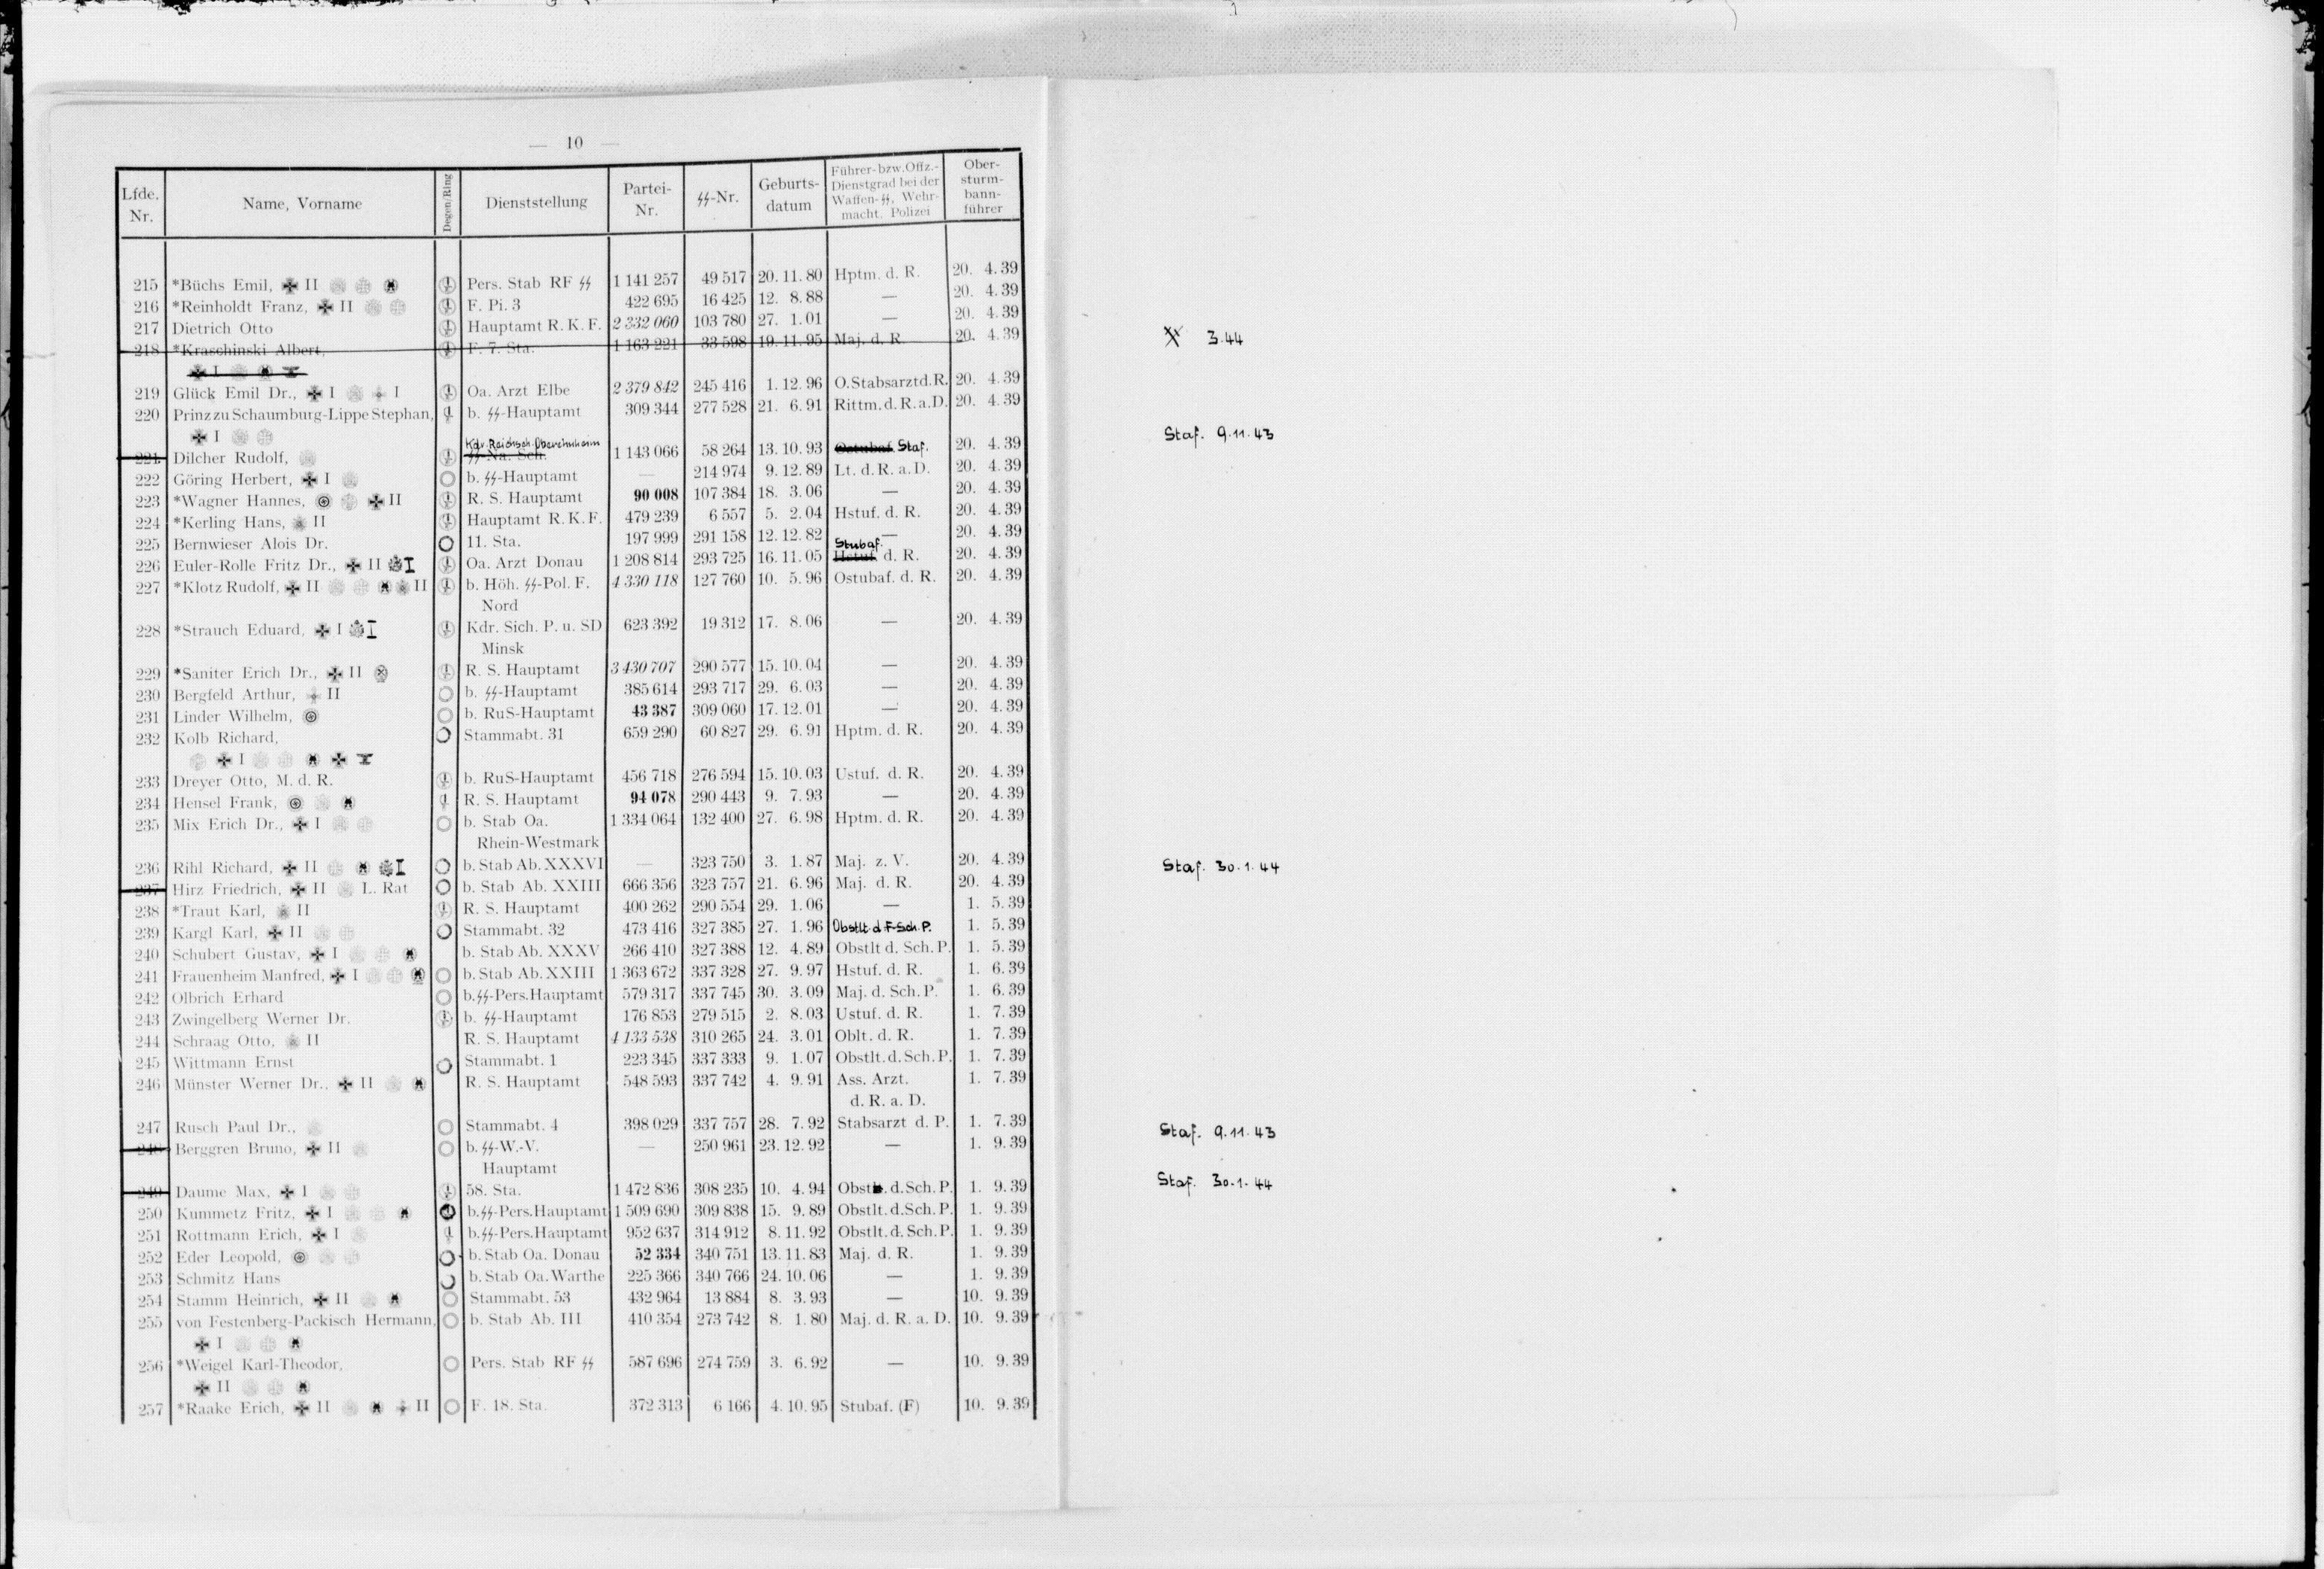 — 10 —
Lfde. Nr. | Name, Vorname | Degen/Ring | Dienststellung | Partei-Nr. | ᛋᛋ-Nr. | Geburts-datum | Führer-bzw. Offz.-Dienstgrad bei der Waffen-ᛋᛋ, Wehr-macht, Polizei | Ober-sturm-bann-führer
215 *Büchs Emil, ✠ II Pers. Stab RF ᛋᛋ 1 141 257 49 517 20. 11. 80 Hptm. d. R. 20. 4. 39
216 *Reinholdt Franz, ✠ II F. Pi. 3 422 695 16 425 12. 8. 88 — 20. 4. 39
217 Dietrich Otto Hauptamt R. K. F. 2 332 060 103 780 27. 1. 01 — 20. 4. 39
218 *Kraschinski Albert, F. 7. Sta. 1 163 221 33 598 19. 11. 95 Maj. d. R. 20. 4. 39 3.44
✠ I
219 Glück Emil Dr., ✠ I I Oa. Arzt Elbe 2 379 842 245 416 1. 12. 96 O.Stabsarzt d. R. 20. 4. 39
220 Prinz zu Schaumburg-Lippe Stephan, b. ᛋᛋ-Hauptamt 309 344 277 528 21. 6. 91 Rittm. d. R. a. D. 20. 4. 39
✠ I
Kdr. Reichssch. Oberehnheim
221 Dilcher Rudolf, ᛋᛋ-Na. Sch. 1 143 066 58 264 13. 10. 93 Ostubaf. Staf. 20. 4. 39 Staf. 9.11.43
222 Göring Herbert, ✠ I b. ᛋᛋ-Hauptamt — 214 974 9. 12. 89 Lt. d. R. a. D. 20. 4. 39
223 *Wagner Hannes, ✠ II R. S. Hauptamt 90 008 107 384 18. 3. 06 — 20. 4. 39
224 *Kerling Hans, II Hauptamt R. K. F. 479 239 6 557 5. 2. 04 Hstuf. d. R. 20. 4. 39
225 Bernwieser Alois Dr. 11. Sta. 197 999 291 158 12. 12. 82 — 20. 4. 39
Stubaf.
226 Euler-Rolle Fritz Dr., ✠ II I Oa. Arzt Donau 1 208 814 293 725 16. 11. 05 Hstuf. d. R. 20. 4. 39
227 *Klotz Rudolf, ✠ II II b. Höh. ᛋᛋ-Pol. F. 4 330 118 127 760 10. 5. 96 Ostubaf. d. R. 20. 4. 39
Nord
228 *Strauch Eduard, ✠ I I Kdr. Sich. P. u. SD 623 392 19 312 17. 8. 06 — 20. 4. 39
Minsk
229 *Saniter Erich Dr., ✠ II R. S. Hauptamt 3 430 707 290 577 15. 10. 04 — 20. 4. 39
230 Bergfeld Arthur, II b. ᛋᛋ-Hauptamt 385 614 293 717 29. 6. 03 — 20. 4. 39
231 Linder Wilhelm, b. RuS-Hauptamt 43 387 309 060 17. 12. 01 — 20. 4. 39
232 Kolb Richard, Stammabt. 31 659 290 60 827 29. 6. 91 Hptm. d. R. 20. 4. 39
✠ I ✠
233 Dreyer Otto, M. d. R. b. RuS-Hauptamt 456 718 276 594 15. 10. 03 Ustuf. d. R. 20. 4. 39
234 Hensel Frank, R. S. Hauptamt 94 078 290 443 9. 7. 93 — 20. 4. 39
235 Mix Erich Dr., ✠ I b. Stab Oa. 1 334 064 132 400 27. 6. 98 Hptm. d. R. 20. 4. 39
Rhein-Westmark
236 Rihl Richard, ✠ II I b. Stab Ab. XXXVI — 323 750 3. 1. 87 Maj. z. V. 20. 4. 39
237 Hirz Friedrich, ✠ II L. Rat b. Stab Ab. XXIII 666 356 323 757 21. 6. 96 Maj. d. R. 20. 4. 39 Staf. 30.1.44
238 *Traut Karl, II R. S. Hauptamt 400 262 290 554 29. 1. 06 — 1. 5. 39
239 Kargl Karl, ✠ II Stammabt. 32 473 416 327 385 27. 1. 96 Obstlt. d. F. Sch. P. 1. 5. 39
240 Schubert Gustav, ✠ I b. Stab Ab. XXXV 266 410 327 388 12. 4. 89 Obstlt d. Sch. P. 1. 5. 39
241 Frauenheim Manfred, ✠ I b. Stab Ab. XXIII 1 363 672 337 328 27. 9. 97 Hstuf. d. R. 1. 6. 39
242 Olbrich Erhard b. ᛋᛋ-Pers. Hauptamt 579 317 337 745 30. 3. 09 Maj. d. Sch. P. 1. 6. 39
243 Zwingelberg Werner Dr. b. ᛋᛋ-Hauptamt 176 853 279 515 2. 8. 03 Ustuf. d. R. 1. 7. 39
244 Schraag Otto, II R. S. Hauptamt 4 133 538 310 265 24. 3. 01 Oblt. d. R. 1. 7. 39
245 Wittmann Ernst Stammabt. 1 223 345 337 333 9. 1. 07 Obstlt. d. Sch. P. 1. 7. 39
246 Münster Werner Dr., ✠ II R. S. Hauptamt 548 593 337 742 4. 9. 91 Ass. Arzt. 1. 7. 39
d. R. a. D.
247 Rusch Paul Dr., Stammabt. 4 398 029 337 757 28. 7. 92 Stabsarzt d. P. 1. 7. 39
248 Berggren Bruno, ✠ II b. ᛋᛋ-W.-V. — 250 961 23. 12. 92 — 1. 9. 39 Staf. 9.11.43
Hauptamt
249 Daume Max, ✠ I 58. Sta. 1 472 836 308 235 10. 4. 94 Obst. d. Sch. P. 1. 9. 39 Staf. 30.1.44
250 Kummetz Fritz, ✠ I b. ᛋᛋ-Pers. Hauptamt 1 509 690 309 838 15. 9. 89 Obstlt. d. Sch. P. 1. 9. 39
251 Rottmann Erich, ✠ I b. ᛋᛋ-Pers. Hauptamt 952 637 314 912 8. 11. 92 Obstlt. d. Sch. P. 1. 9. 39
252 Eder Leopold, b. Stab Oa. Donau 52 334 340 751 13. 11. 83 Maj. d. R. 1. 9. 39
253 Schmitz Hans b. Stab Oa. Warthe 225 366 340 766 24. 10. 06 — 1. 9. 39
254 Stamm Heinrich, ✠ II Stammabt. 53 432 964 13 884 8. 3. 93 — 10. 9. 39
255 von Festenberg-Packisch Hermann, b. Stab Ab. III 410 354 273 742 8. 1. 80 Maj. d. R. a. D. 10. 9. 39
✠ I
256 *Weigel Karl-Theodor, Pers. Stab RF ᛋᛋ 587 696 274 759 3. 6. 92 — 10. 9. 39
✠ II
257 *Raake Erich, ✠ II II F. 18. Sta. 372 313 6 166 4. 10. 95 Stubaf. (F) 10. 9. 39